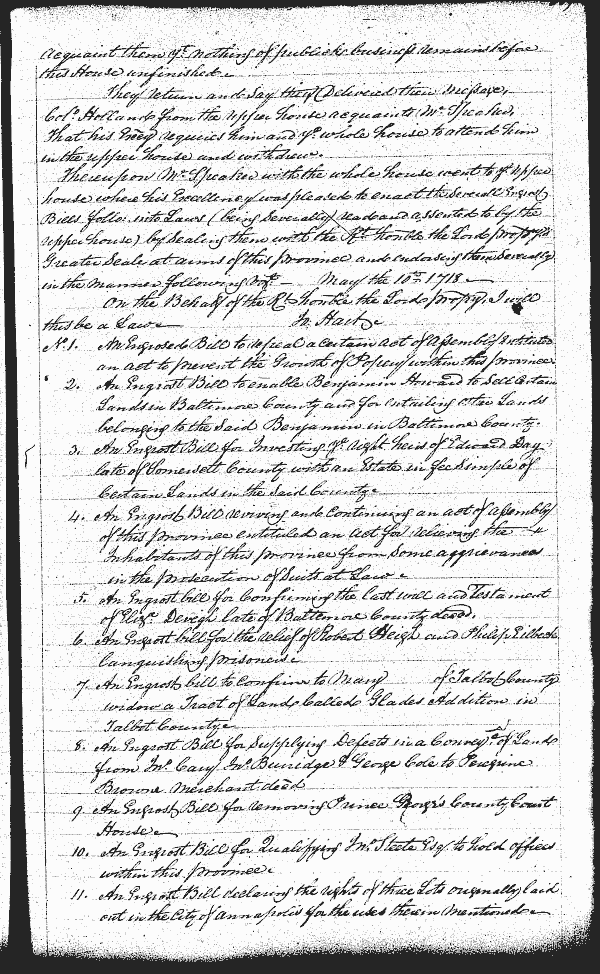 acquaint them yt. nothing of publick business remains before
this House unfinished.
They return and Say they Delivered their Message,
Col. Holland from the upper house acquaints Mr. Speaker,
That his Excy requires him and ye. whole house to attend him
in the upper house and withdrew.
Thereupon Mr. Speaker with the whole house went to ye. upper
house where his Excellency was pleased to enact the Severall Engrost
Bills follo: into Laws (being Severally read and assented to by the
upper house) by Sealing them with the Rt. Honble the Lord
Greater Seale at arms of this province and endorsing them Severally
in the manner following May the 10th 1718
On the Behalf of the Rt. Honble the Lord propry. I will
this be a Law Jn. Hart
No. 1. An Engrosed Bill to repeal a certain act of Assembly entituled
an act to prevent the Growth of Popery within this province
2. An Engrost Bill to enable Benjamin Howard to Sell Certain
Lands in Baltimore County and for entailing other Lands
belonging to the Said Benjamin in Baltimore County.
3. An Engrost Bill for Investing ye. right heirs of Edward Day
late of Somersett County with an Estate in fee Simple of
Certain Lands in the Said County
4. An Engrost Bill reviving and Continuing an act of assembly
of this province entituled an Act for relieving the
Inhabitants of this province from Some aggrievances
in the prosecution of Suits at Law
5. An Engrost bill for Confirming the last will and Testament
of Eliza. late of Baltemore County decd.
6. An Engrost bill for the relief of Robert and Philip
languishing prisoners
7. An Engrost bill to Confirm to Mary of Talbot County
widow a Tract of Land Called Glades Addition in
Talbot County
8. An Engrost Bill for Supplying Defects in a Convey.ce of Land
from Jno. Cary Jno. Burridge & George Cole to Peregrine
Browne Merchant decd
9. An Engrost Bill for removing Prince George's County Court
House
10. An Engrost Bill for Qualifying Jno. Steele Esq. to hold offices
within this province
11. An Engrost Bill declaring the rights of three Lots originally laid
out in the City of Annapolis for the uses therein Mentioned